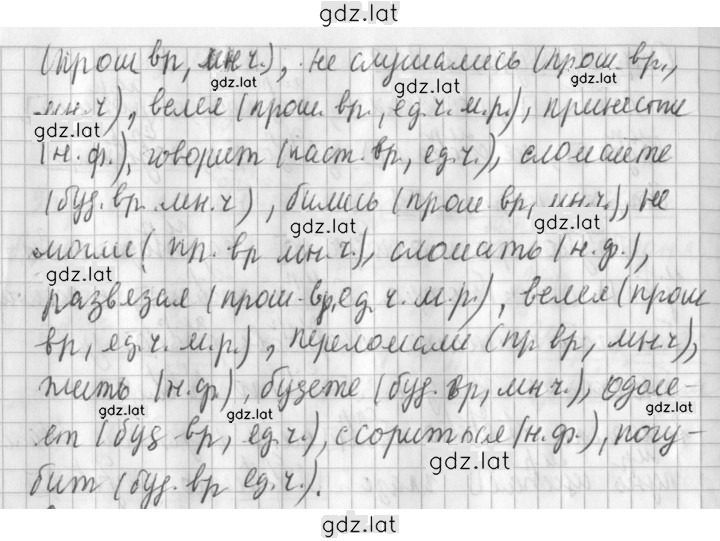 gdz.lat
(прош вр, мн ч.), не слушались (прош. вр.,
gdz.lat gdz.lat gdz.lat
мн.ч), велел (прош. вр., ед. ч. м.р.), принести
gdz.lat
(н. ф.), говорит (наст. вр, ед.ч.), сломаете
gdz.lat
(буд. вр. мн.ч), бились (прош вр, мн.ч.), не
gdz.lat gdz.lat
могли ( пр. вр мн.ч.), сломать (н. ф.),
gdz.lat
развязал (прош-вр, ед. ч. м.р.), велел (прош
вр, ед.ч. м.р.), переломали (пр вр, мн.ч),
жить (н. ф), будете (буд. вр, мн ч.), одоле-
gdz.lat gdz.lat gdz.lat
ет (буд вр, ед.ч.), ссориться (н. ф.), погу-
gdz.lat
бит (буд. вр ед.ч.).
gdz.lat